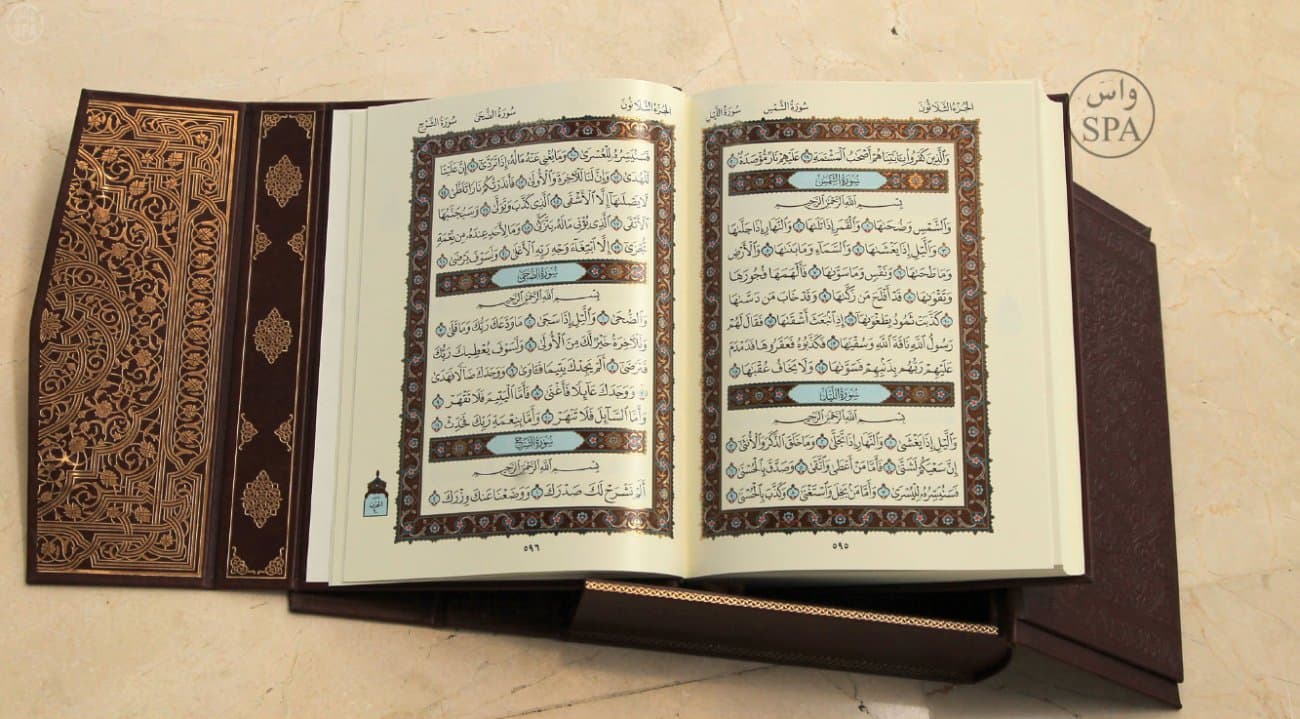 واس
SPA
الجزء الثلاثون
سورة الشمس
سورة الليل
وَالَّذِينَ كَفَرُوا بِـَٔايَٰتِنَا هُمْ أَصْحَٰبُ ٱلْمَشْـَٔمَةِ ١٩ عَلَيْهِمْ نَارٌ مُّؤْصَدَةٌۢ ٢٠
سُورَةُ الشَّمْسِ
بِسْمِ ٱللَّهِ ٱلرَّحْمَٰنِ ٱلرَّحِيمِ
وَٱلشَّمْسِ وَضُحَىٰهَا ١ وَٱلْقَمَرِ إِذَا تَلَىٰهَا ٢ وَٱلنَّهَارِ إِذَا جَلَّىٰهَا
٣ وَٱلَّيْلِ إِذَا يَغْشَىٰهَا ٤ وَٱلسَّمَآءِ وَمَا بَنَىٰهَا ٥ وَٱلْأَرْضِ
وَمَا طَحَىٰهَا ٦ وَنَفْسٍ وَمَا سَوَّىٰهَا ٧ فَأَلْهَمَهَا فُجُورَهَا
وَتَقْوَىٰهَا ٨ قَدْ أَفْلَحَ مَن زَكَّىٰهَا ٩ وَقَدْ خَابَ مَن دَسَّىٰهَا
١٠ كَذَّبَتْ ثَمُودُ بِطَغْوَىٰهَآ ١١ إِذِ ٱنۢبَعَثَ أَشْقَىٰهَا ١٢ فَقَالَ لَهُمْ
رَسُولُ ٱللَّهِ نَاقَةَ ٱللَّهِ وَسُقْيَٰهَا ١٣ فَكَذَّبُوهُ فَعَقَرُوهَا فَدَمْدَمَ
عَلَيْهِمْ رَبُّهُم بِذَنۢبِهِمْ فَسَوَّىٰهَا ١٤ وَلَا يَخَافُ عُقْبَٰهَا ١٥
سُورَةُ اللَّيْلِ
بِسْمِ ٱللَّهِ ٱلرَّحْمَٰنِ ٱلرَّحِيمِ
وَٱلَّيْلِ إِذَا يَغْشَىٰ ١ وَٱلنَّهَارِ إِذَا تَجَلَّىٰ ٢ وَمَا خَلَقَ ٱلذَّكَرَ وَٱلْأُنثَىٰٓ ٣
إِنَّ سَعْيَكُمْ لَشَتَّىٰ ٤ فَأَمَّا مَنْ أَعْطَىٰ وَٱتَّقَىٰ ٥ وَصَدَّقَ بِٱلْحُسْنَىٰ ٦
فَسَنُيَسِّرُهُۥ لِلْيُسْرَىٰ ٧ وَأَمَّا مَنۢ بَخِلَ وَٱسْتَغْنَىٰ ٨ وَكَذَّبَ بِٱلْحُسْنَىٰ ٩
٥٩٥
الجزء الثلاثون
سورة الضحى
سورة الشرح
فَسَنُيَسِّرُهُۥ لِلْعُسْرَىٰ ١٠ وَمَا يُغْنِى عَنْهُ مَالُهُۥٓ إِذَا تَرَدَّىٰٓ ١١ إِنَّ عَلَيْنَا
لَلْهُدَىٰ ١٢ وَإِنَّ لَنَا لَلْـَٔاخِرَةَ وَٱلْأُولَىٰ ١٣ فَأَنذَرْتُكُمْ نَارًا تَلَظَّىٰ ١٤
لَا يَصْلَىٰهَآ إِلَّا ٱلْأَشْقَى ١٥ ٱلَّذِى كَذَّبَ وَتَوَلَّىٰ ١٦ وَسَيُجَنَّبُهَا
ٱلْأَتْقَى ١٧ ٱلَّذِى يُؤْتِى مَالَهُۥ يَتَزَكَّىٰ ١٨ وَمَا لِأَحَدٍ عِندَهُۥ مِن نِّعْمَةٍ
تُجْزَىٰٓ ١٩ إِلَّا ٱبْتِغَآءَ وَجْهِ رَبِّهِ ٱلْأَعْلَىٰ ٢٠ وَلَسَوْفَ يَرْضَىٰ ٢١
سُورَةُ الضُّحَى
بِسْمِ ٱللَّهِ ٱلرَّحْمَٰنِ ٱلرَّحِيمِ
وَٱلضُّحَىٰ ١ وَٱلَّيْلِ إِذَا سَجَىٰ ٢ مَا وَدَّعَكَ رَبُّكَ وَمَا قَلَىٰ ٣
وَلَلْـَٔاخِرَةُ خَيْرٌ لَّكَ مِنَ ٱلْأُولَىٰ ٤ وَلَسَوْفَ يُعْطِيكَ رَبُّكَ
فَتَرْضَىٰٓ ٥ أَلَمْ يَجِدْكَ يَتِيمًا فَـَٔاوَىٰ ٦ وَوَجَدَكَ ضَآلًّا فَهَدَىٰ
٧ وَوَجَدَكَ عَآئِلًا فَأَغْنَىٰ ٨ فَأَمَّا ٱلْيَتِيمَ فَلَا تَقْهَرْ ٩
وَأَمَّا ٱلسَّآئِلَ فَلَا تَنْهَرْ ١٠ وَأَمَّا بِنِعْمَةِ رَبِّكَ فَحَدِّثْ ١١
سُورَةُ الشَّرْحِ
بِسْمِ ٱللَّهِ ٱلرَّحْمَٰنِ ٱلرَّحِيمِ
أَلَمْ نَشْرَحْ لَكَ صَدْرَكَ ١ وَوَضَعْنَا عَنكَ وِزْرَكَ ٢
٥٩٦